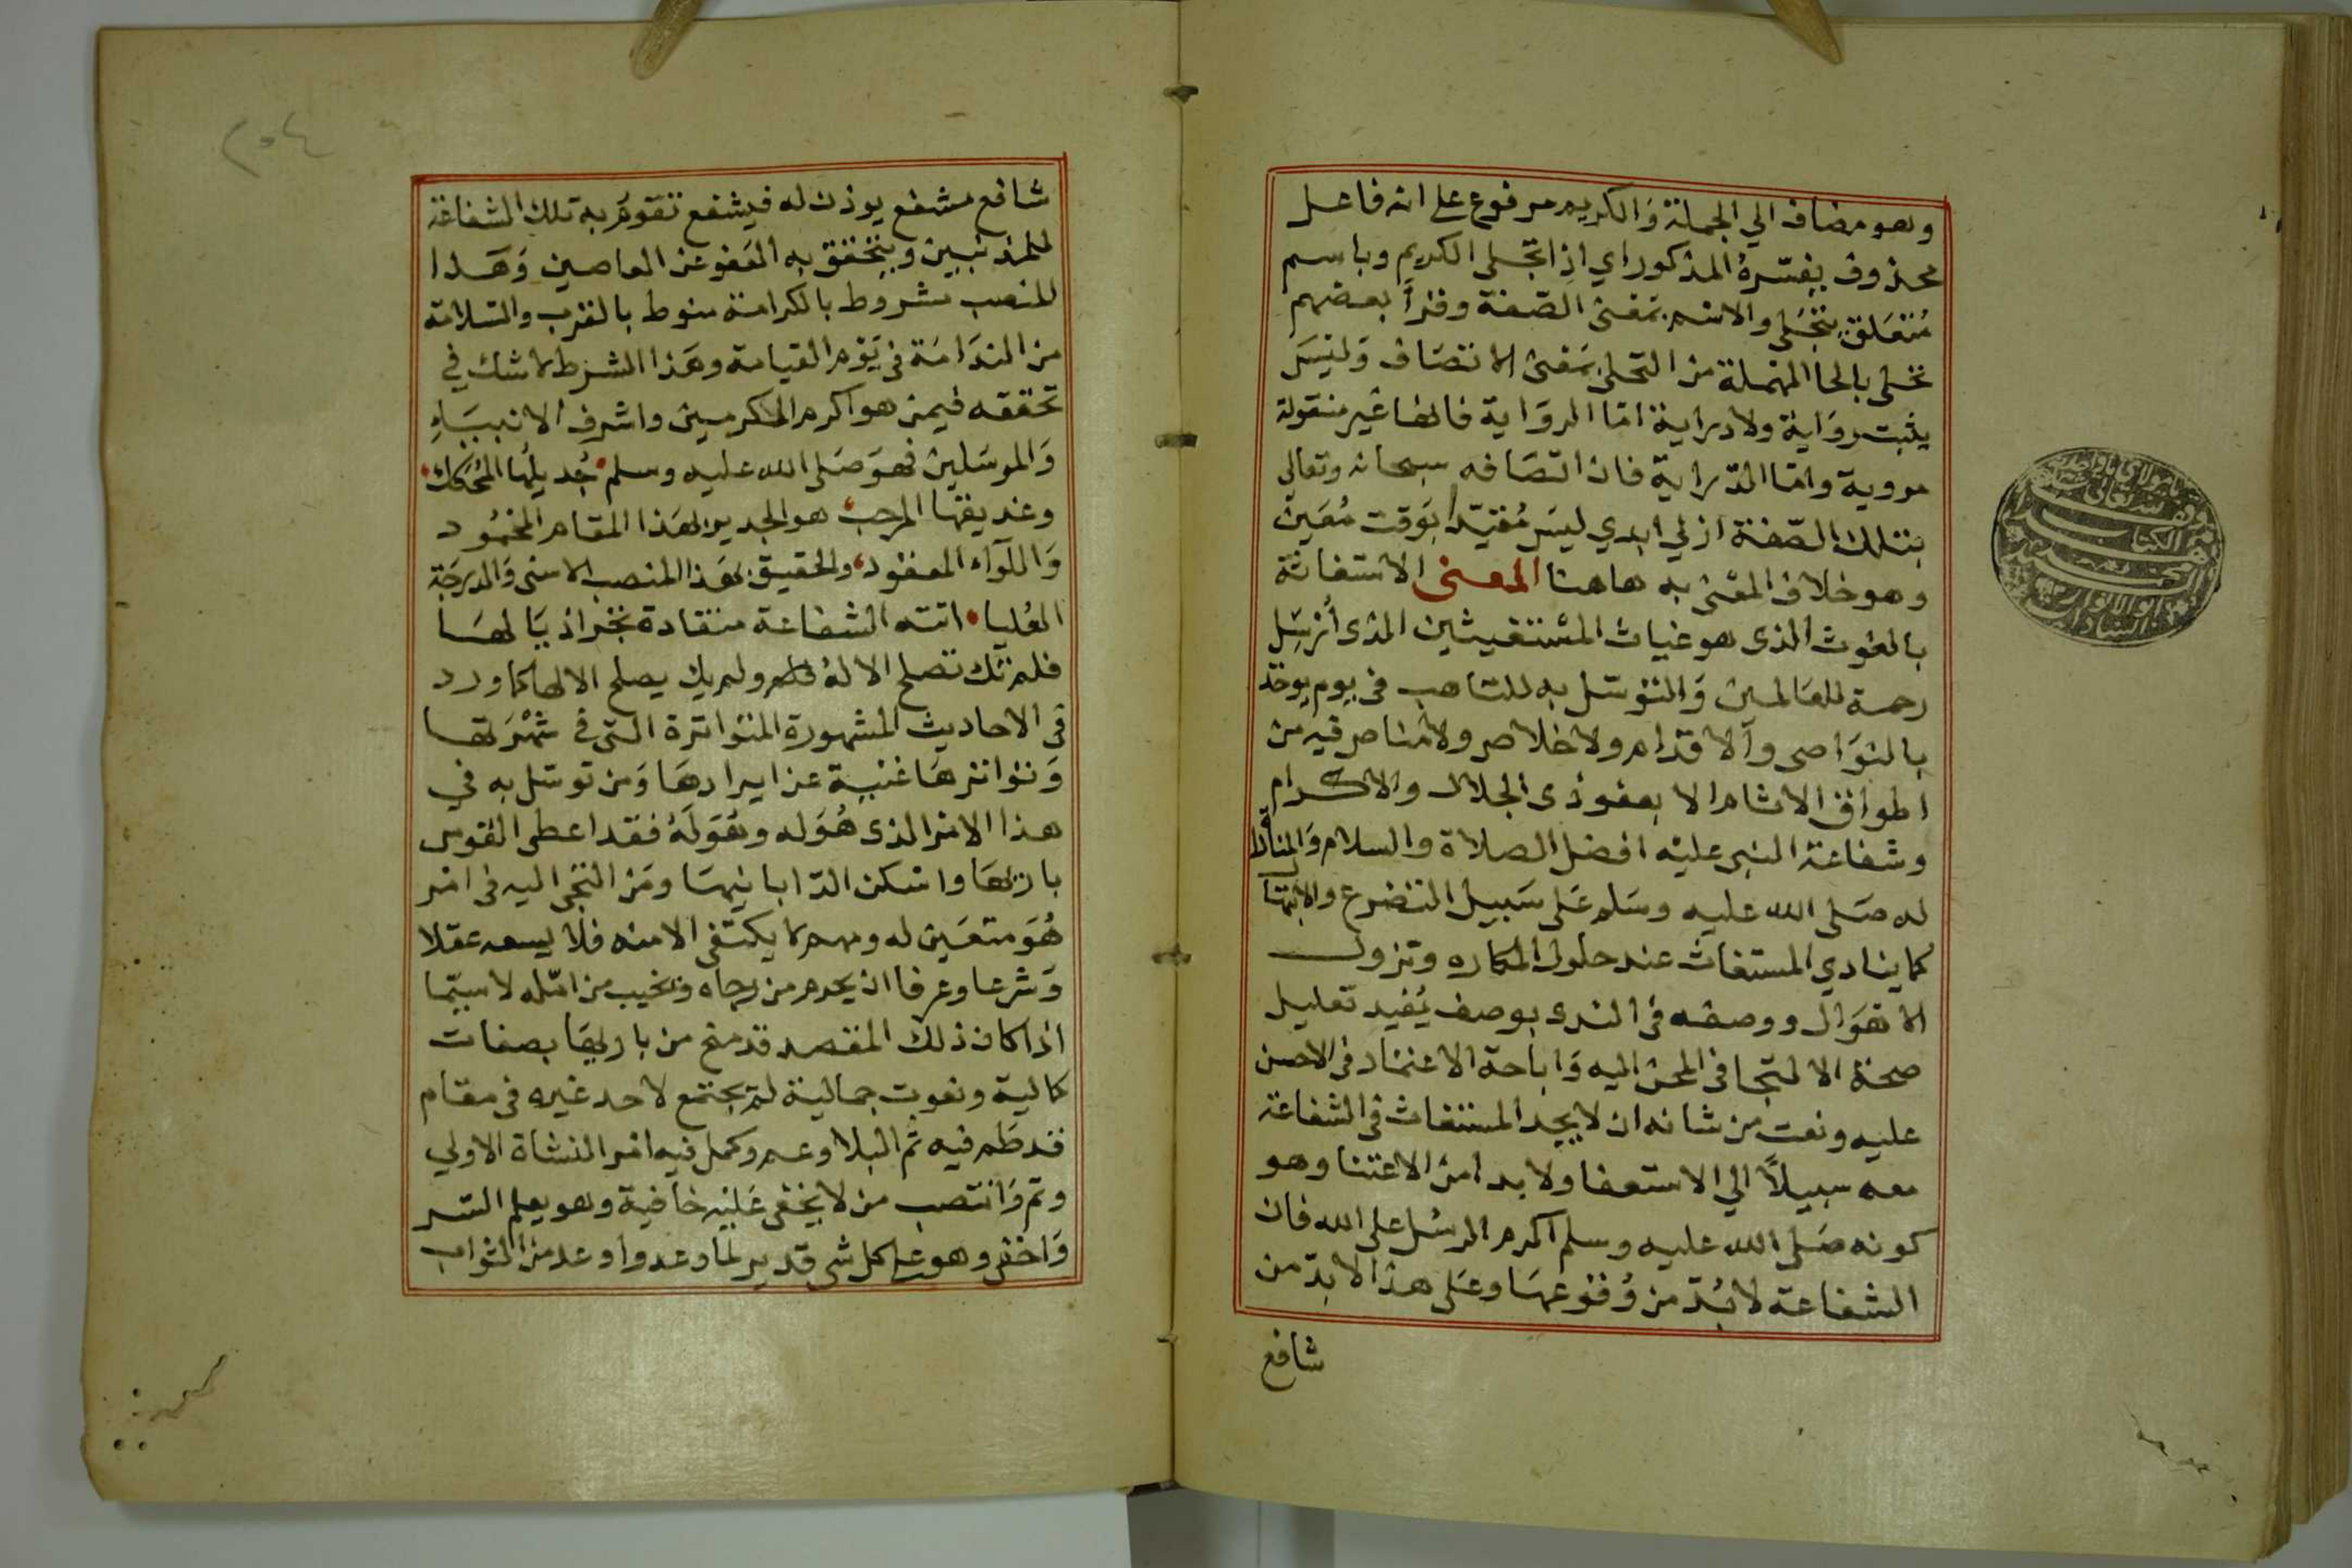 وهو مضاف الي الجملة وَالكريم مرفوع على انه فاعل
محذوف يفسّرهُ المذكور اي اذِا تجلى الكريم وباسم
مُتعَلق بتجَلى والاسْم بمَعْنىَ الصّفة وقرأَ بعضهم
تحلى بالحا المهْملة من التحلى بمَعْنىَ الاتصَاف وَليْسَ
يثبت روَاية ولا دراية امّا الروَاية فانها غَير منقولة
مروية وامّا الدّراية فان اتصَافه سبحانه وتعالى
بتلك الصّفة ازلي ابدي ليسَ مُقيّدا بوَقت مُعَين
وهو خلاف المعْنى به هاهنا المعنى الاستغاثة
بالغوث الذى هو غياث المسْتغيثين الذى أُرْسِل
رحمة للعَالمين وَالتوسّل به للتاهب فى يوم يوخذ
بالنوَاصى وآلاقدام ولا خلاص ولا مناص فيه من
اطواق الاثام الا بعفو ذى الجلال والاكرام
وشفاعة النبي عليْه افضل الصلاة والسلام وَالمناداة
له صَلى الله عليه وسَلم عَلى سَبيل التضرع والابتها
كما ينادي المستغاث عند حلول المكاره ونزول
الاهْوَال ووصفه فى الندى بوصف يُفيد تعليل
صحة الالتجا فى المحن اليه وَاباحة الاعتماد فى الاحسن
عليه ونعت من شانه ان لا يجد المستغاث فى الشفاعة
معه سبيلاً الي الاستعفا ولا بدا من الاعتنا وهو
كونه صَلى الله عليه وسلم اكرم الرسْل على الله فان
الشفاعة لا بُدّ من وُقوعهَا وعَلى هذا لا بدّ من
شافع
شافع مشفع يوذن له فيشفع تقومُ به تلك الشفاعة
للمذنبين ويتحقق به العَفو عن العاصين وَهَذا
المنصب مشروط بالكرامة منوط بالقرب والسّلامة
من الندَامَة فى يَوْم القيامة وهَذا الشرط لا شك في
تحققه فيمن هو اكرم المكرمين واشرف الانبيَاءِ
وَالمرسَلين فهوَ صَلى الله عليه وسلم جُديلُها المُحَكك
وعذيقها المرجب هو الجدير لهَذا المقام المَحْمُود
وَاللوَآء المعقود والحقيق بهَذا المنصب الاسنى وَالدرجَة
العُليا اتته الشفاعة منقادة تجْر اذيَالهَا
فلم تك تصلح الا لهُ ولم يك يصلح الا لها كما ورد
فى الاحاديث المشهورة المتواترة التى في شُهْرَتها
وَتواترهَا غنية عن ايرادهَا وَمن توسّل به في
هذا الامْر الذى هُوَ له وهُوَ لَهُ فقد اعطى القوس
باريهَا واسْكن الدّار بانيهَا ومَن التجَى اليه فى امْر
هُوَ متعَين له ومهم لا يكتفى الا منه فلا يسعه عقلا
وَشرعا وعرفا ان يحرم من رجاه ويخيب من امّله لاسيّما
اذا كان ذلك المقصد قد منح من باريهَا بصفات
كمالية ونعوت جمالية لمْ يجتمع لاحد غيره فى مقام
قد طَم فيه ثَم البلا وعم وكمل فيه امْر النشاة الاولي
وتم وَانتصب من لا يخفى عَليْه خافية وهو يعلم السّر
وَاخفى وهو على كل شى قدير لما وعد واوعد من الثواب
٢٥٤